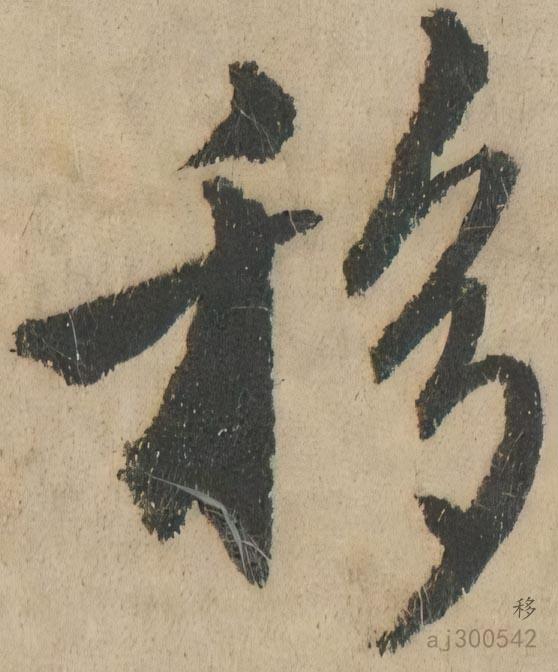 移
移
aj300542